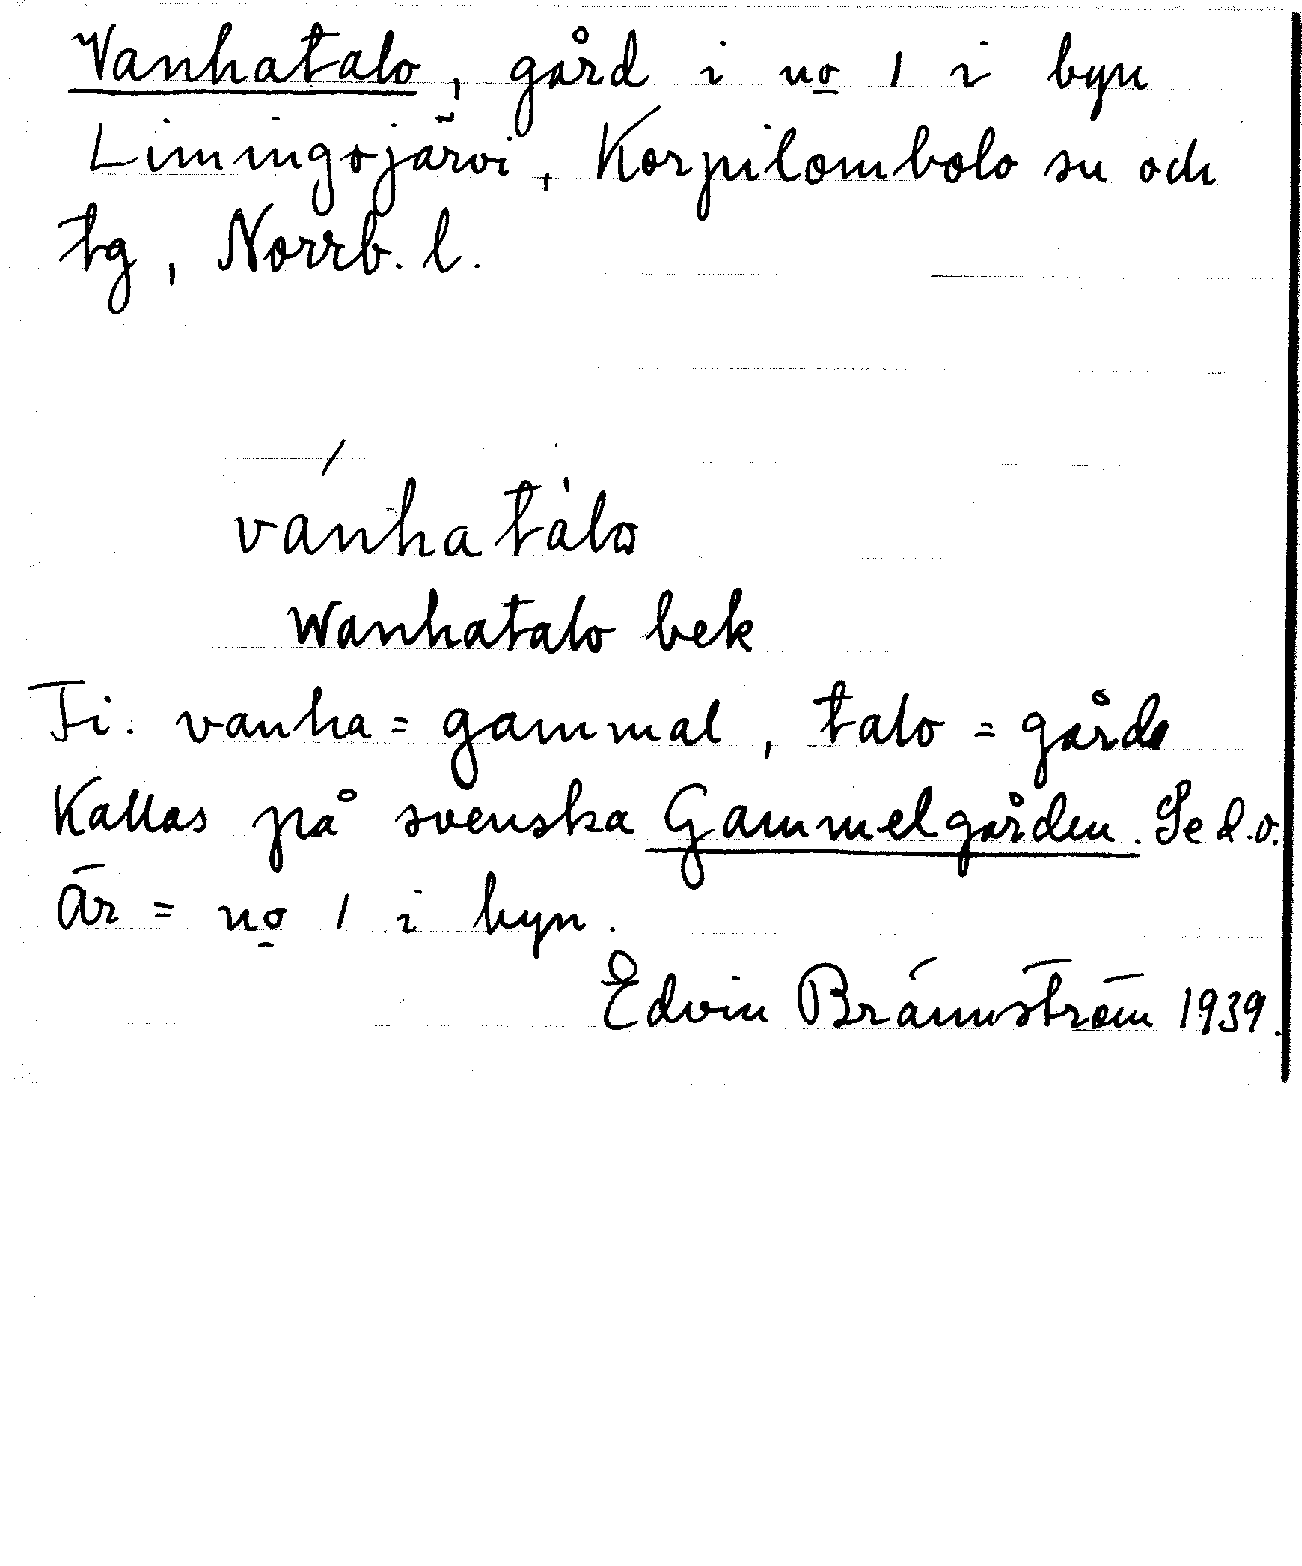 Vanhatalo, gård i no 1 i byn
Limingojärvi, Korpilombolo sn och
tg, Norrb. l.
vánhatàlo
Wanhatalo bek
Fi. vanha = gammal, talo = gård
Kallas på svenska Gammelgården. Se d.o.
Är = no 1 i byn.
Edvin Brännström 1939.